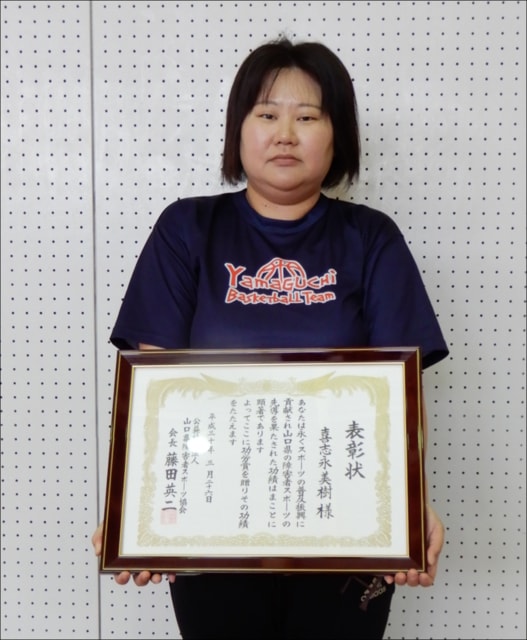 Yamaguchi
Basketball Team
表彰状
喜志永美樹様
あなたは永くスポーツの普及振興に
貢献され山口県の障害者スポーツの
先導を果たされた功績はまことに
顕著であります
よってここに功労賞を贈りその功績
をたたえます
平成三十年三月二十六日
山口県障害者スポーツ協会
会長 藤田英二